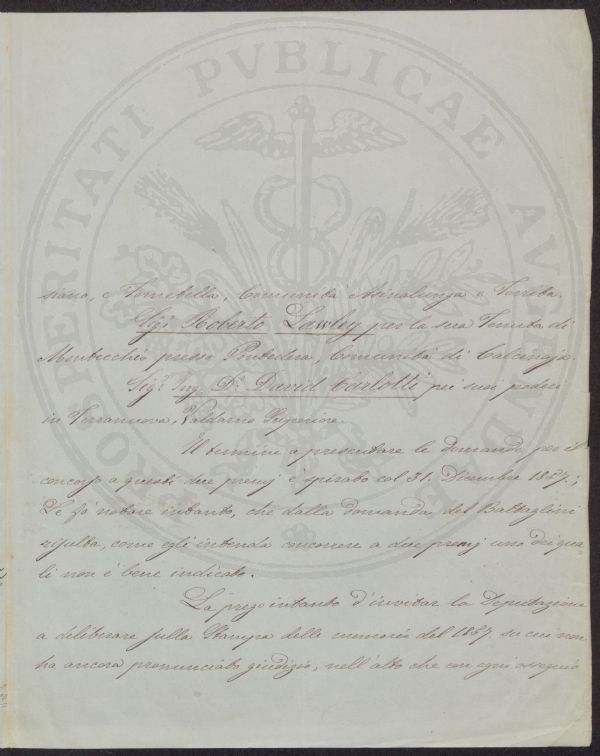 PROSPERITATI PVBLICAE AVGENDAE
siano, e Torrebella, Comunità Asinalunga e Torrita.
Sigr. Roberto Lawley per la sua Tenuta di
Montecchio presso Pontedera, Comunità di Calcinaja.
Sigr. Ing. Dr. David Carlotti pei suoi poderi
in Terranuova, Valdarno Superiore.
Il termine a presentare le domande per il
concorso a questi due premj è spirato col 31. Dicembre 1857.;
Le fò notare intanto, che dalla domanda del Battaglini
risulta, come egli intenda concorrere a due premj uno dei qua-
li non è bene indicato.
La prego intanto d'invitar la Deputazione
a deliberare sulla Stampa delle memorie del 1857 su cui non
ha ancora pronunciato giudizio, nell'atto che con ogni ossequio